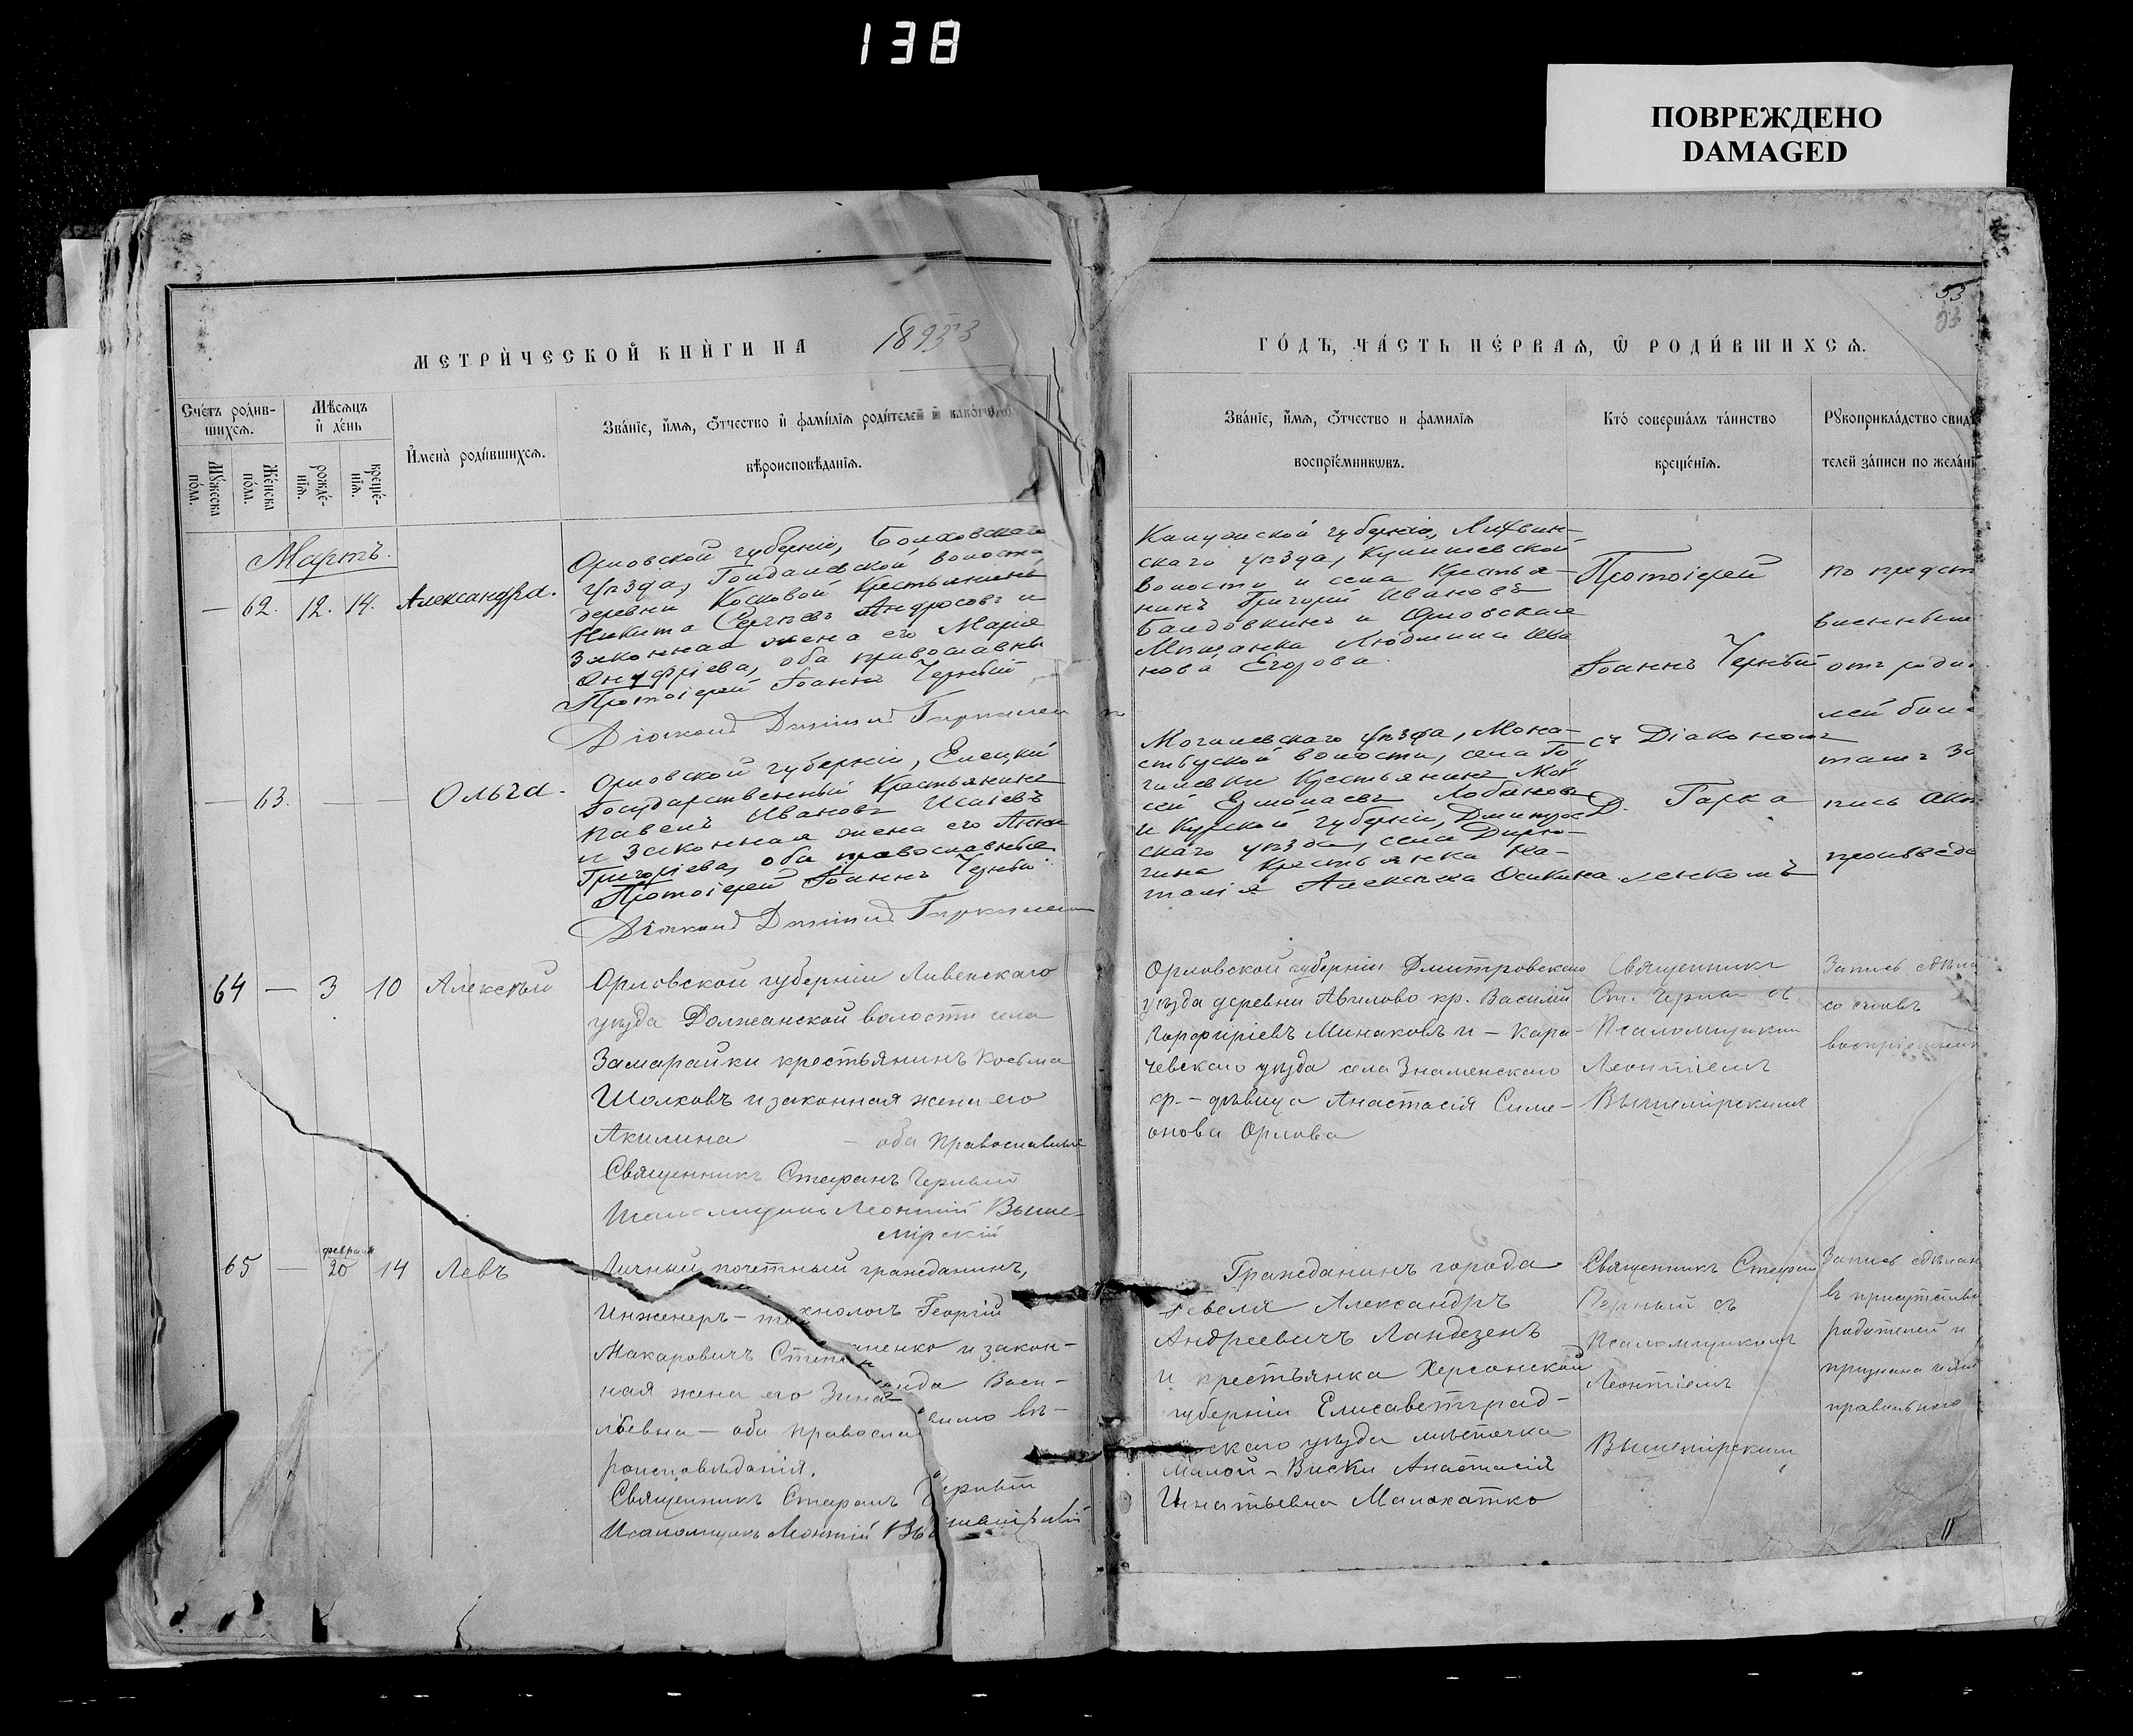 138
ПОВРЕЖДЕНО
DAMAGED
53
МЕТРИ́ЧЕСКОЙ КНИ́ГИ НА 1893
ГО́ДЪ, ЧА́СТЬ ПЕ́РВАѦ, Ѡ РОДИ́ВШИХСѦ.
Сче́тъ роди́в-
шихсѧ.
Мꙋжеска по́ла.
Же́нска по́ла.
Мѣсѧцъ
и де́нь
рожде́-
нїѧ.
креще́-
нїѧ.
И́мена роди́вшихсѧ.
Зва́нїе, и́мѧ, ѻ́тчество и фами́лїѧ роди́телей и како́гѡ
вѣроисповѣ́данїѧ.
Зва́нїе, и́мѧ, ѻ́тчество и фами́лїѧ
воспрїе́мникѡвъ.
Кто́ соверша́лъ та́инство
креще́нїѧ.
Рꙋкоприкла́дство свид
телей за́писи по жела́нї
Мартъ.
— 62. 12. 14. Александра.
Орловской губерніи, Болховскаго
уѣзда, волости
деревни Косковой Крестьянинъ
Никита Сергѣевъ Андросовъ и
Законная жена его Марія
Онуфріева, оба православны
Протоіерей Іоаннъ Черный
Діаконъ
Калужской губерніи, Лихвин-
скаго уѣзда,
волости и села Крестья-
нинъ Григорій Ивановъ
и Орловская
Мѣщанка Людмила Ива
нова Егорова.
Протоіерей
Іоаннъ Черный
съ Діакономъ
Д. Гарка
ленкомъ
по предст
вленнымъ
отъ роди
лей
пись
произведе
— 63. — — Ольга.
Орловской губерніи, Елецкій
Государственный Крестьянинъ
Павелъ Ивановъ Исаіевъ
и законная жена его Анна
Григоріева, оба православные
Протоіерей Іоаннъ Черный
Діаконъ
Могилевскаго уѣзда, Мона-
стырской волости, села Мо
гилевки Крестьянинъ Мои
сей Лобановъ
и Курской губерніи, Дмитров
скаго уѣзда, села
гина Крестьянка На-
талія Осикина
64 — 3 10 Алексѣй
Орловской губерніи Ливенскаго
уѣзда Должанской волости села
Замарайки крестьянинъ Косьма
Шолковъ и законная жена его
Акилина — оба православные
Священникъ Стефанъ Черный
Псаломщикъ Леонтій Выше-
мірскій
Орловской губерніи Дмитровскаго
уѣзда деревни Авилово кр. Василій
Порфиріевъ Минаковъ и — Кара-
чевскаго уѣзда села Знаменскаго
кр. — дѣвица Анастасія Симе-
онова Орлова
Священникъ
Ст. Черный съ
Псаломщикомъ
Леонтіемъ
Вышемірскимъ
Запись сдѣла
со словъ
воспріемник
65 — февраля 20 14 Левъ
Личный почетный гражданинъ,
Инженеръ-технологъ Георгій
Макаровичъ Степаненко и закон-
ная жена его Зинаида Васи-
льевна — оба православнаго вѣ-
роисповѣданія.
Священникъ Стефанъ Черный
Псаломщикъ Леонтій Вышемірскій
Гражданинъ города
Ревеля Александръ
Андреевичъ Ландезенъ
и крестьянка Херсонской
губерніи Елисаветград-
скаго уѣзда мѣстечка
Малой-Виски Анастасія
Игнатьевна Малокатко
Священникъ Стефанъ
Черный съ
Псаломщикомъ
Леонтіемъ
Вышемірскимъ
Запись сдѣлан
въ присутствіи
родителей и
признана ими
правильною